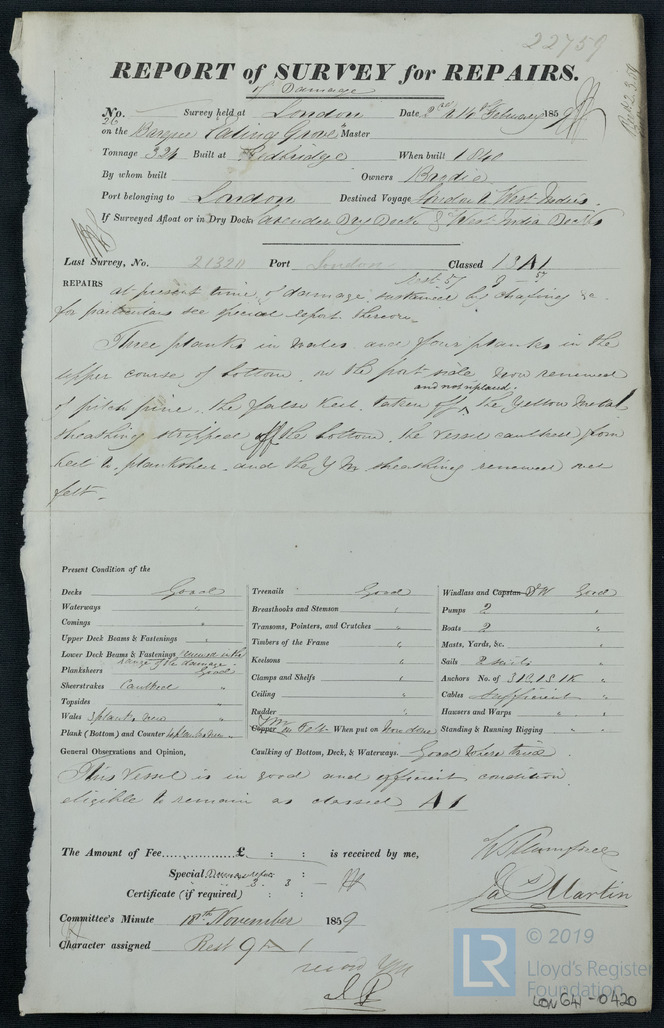 22759
REPORT of SURVEY for REPAIRS.
of Damage
No. 26 Survey held at London Date, 2nd & 14th February 1859
on the Barque Ealing Grove Master
Tonnage 324 Built at Redbridge When built 1840
By whom built Owners Brodie
Port belonging to London Destined Voyage London to West Indies.
If Surveyed Afloat or in Dry Dock Lavender Dry Dock & West India Docks
Last Survey, No. 21320 Port London Classed 13 A 1
Rest. 57 9
REPAIRS at present time, of damage sustained by chafing &c.
for particulars see special report thereon.
Three planks in wales and four planks in the
upper course of bottom on the port side now renewed
and not replaced.
of pitch pine, the false keel taken off, the yellow metal
sheathing stripped off the bottom, the vessel caulked from
keel to planksheer and the YM sheathing renewed over
felt.
Present Condition of the
Decks Good
Waterways "
Comings "
Upper Deck Beams & Fastenings "
Lower Deck Beams & Fastenings renewed in the
range of the damage
Planksheers Good
Sheerstrakes Caulked "
Topsides "
Wales 3 planks new "
Plank (Bottom) and Counter "
Treenails Good
Breasthooks and Stemson "
Transoms, Pointers, and Crutches "
Timbers of the Frame "
Keelsons "
Clamps and Shelfs "
Ceiling "
Rudder "
YM
Copper on Felt When put on Now done
Windlass and Capstan Good
Pumps 2 "
Boats 2 "
Masts, Yards, &c. "
Sails 2 suits "
Anchors No. of 3 B. 1 S. 1 K "
Cables Sufficient "
Hawsers and Warps "
Standing & Running Rigging "
General Observations and Opinion, Caulking of Bottom, Deck, & Waterways Good where tried
This Vessel is in good and efficient condition
eligible to remain as classed A 1
The Amount of Fee £ : : is received by me,
Special Damage 3 . 3 —
Certificate (if required) : :
Jas Martin
Committee's Minute 18th November 1859
Character assigned Rest 9 A 1
record YM
© 2019
LR Lloyd's Register
Foundation
LON 641-0420